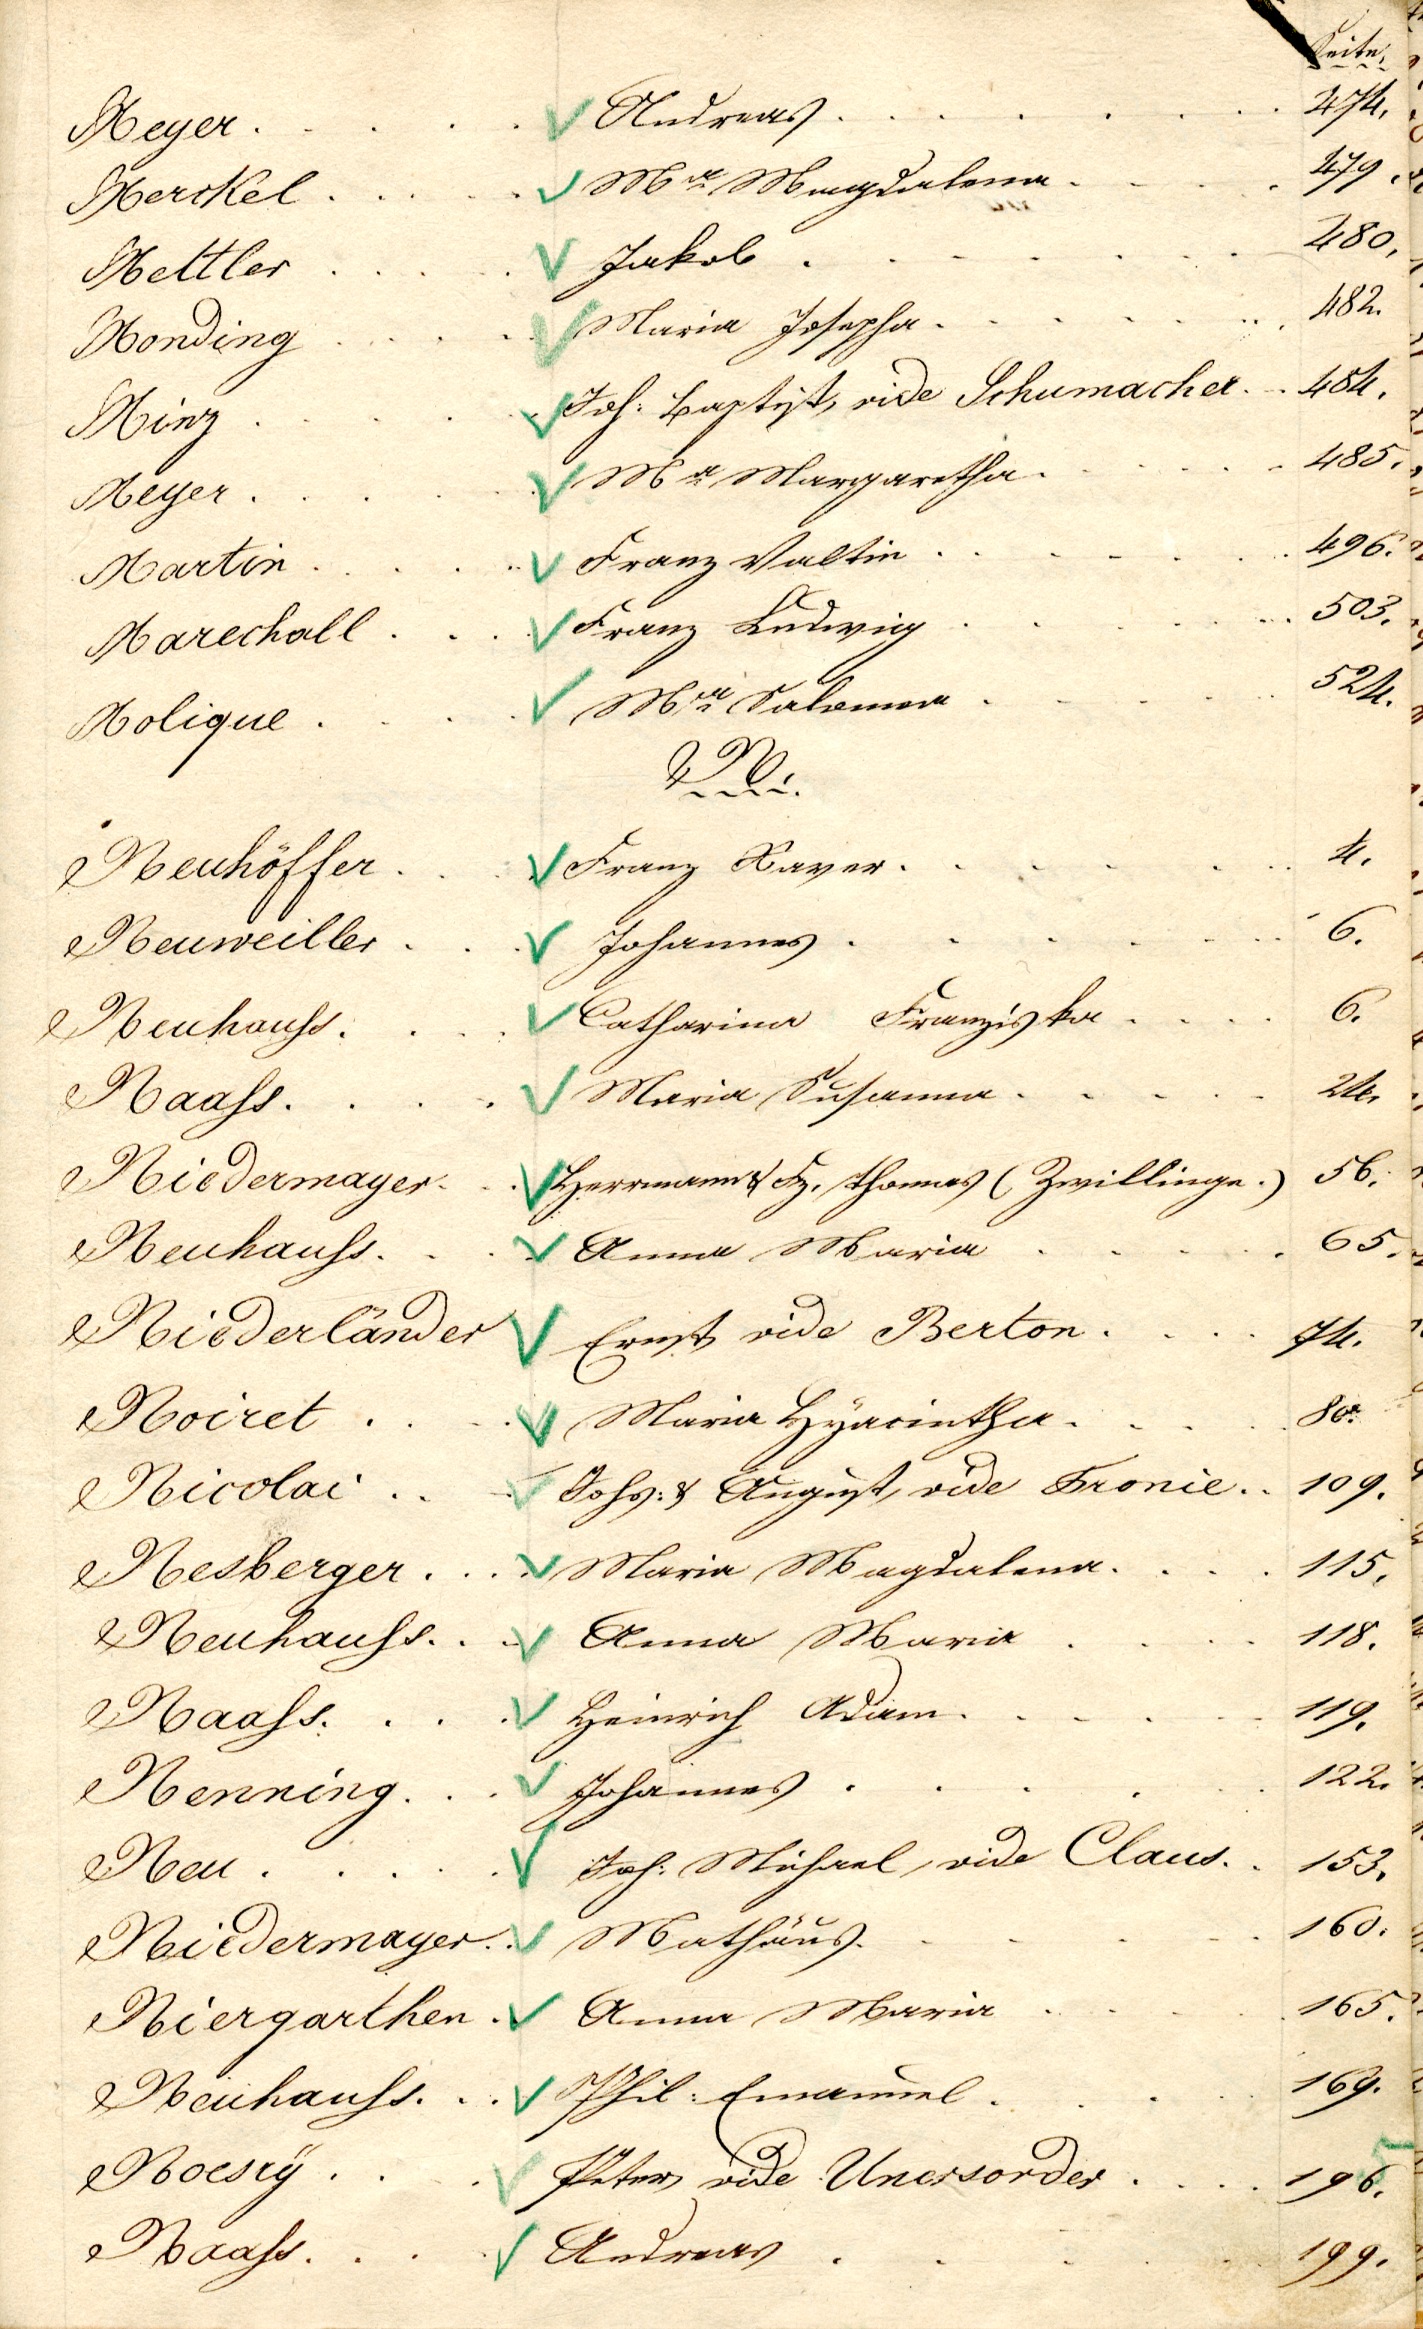 Seite.
Meyer. . . . . Andreas. . . . . . . 474.
Merckel . . . . . Mᵃ Magdalena. . . . 479.
Mettler . . . . . Jakob . . . . . . . 480.
Monding . . . . . Maria Josepha. . . . . . 482.
Minz . . . . Joh: Baptist, vide Schumacher. . 484.
Meyer. . . . . Mᵃ Margaretha. . . . . 485.
Martin. . . . . Franz Valtin . . . . . . 496.
Marechall . . . . Franz Ludwig . . . . . . 503.
Molique . . . . Mᵃ Salomea . . . . . 524.
N.
Neuhöffer. . . . Franz Xaver. . . . . . 4.
Neuweiller . . . Johannes . . . . . . . 6.
Neuhauss. . . . Catharina Franziska . . . . 6.
Naass. . . . . Maria Susanna . . . . . 24.
Niedermayer. . . Herrmann & Fz. Thomas (Zwillinge.) 56.
Neuhauss. . . . Anna Maria . . . . . 65.
Niederländer Ernst vide Berton . . . . 74.
Noiret . . . . Maria Hyacintha. . . . . 80.
Nicolai . . . Johs: & August, vide Fronie. . 109.
Nesberger . . . . Maria Magdalena. . . . . 115.
Neuhauss. . . Anna Maria . . . . 118.
Naass. . . . Heinrich Adam. . . . . . 119.
Nenning. . . . Johannes . . . . . 122.
Neu . . . . . Joh: Michael, vide Claus. . 153.
Niedermayer. . Mathäus. . . . . . 160.
Niergarthen . Anna Maria . . . . . 165.
Neuhauss. . . Phil: Emanuel . . . . 169.
Peter vide . . . . 196.
Naass. . . . . Andreas . . . . . 199.